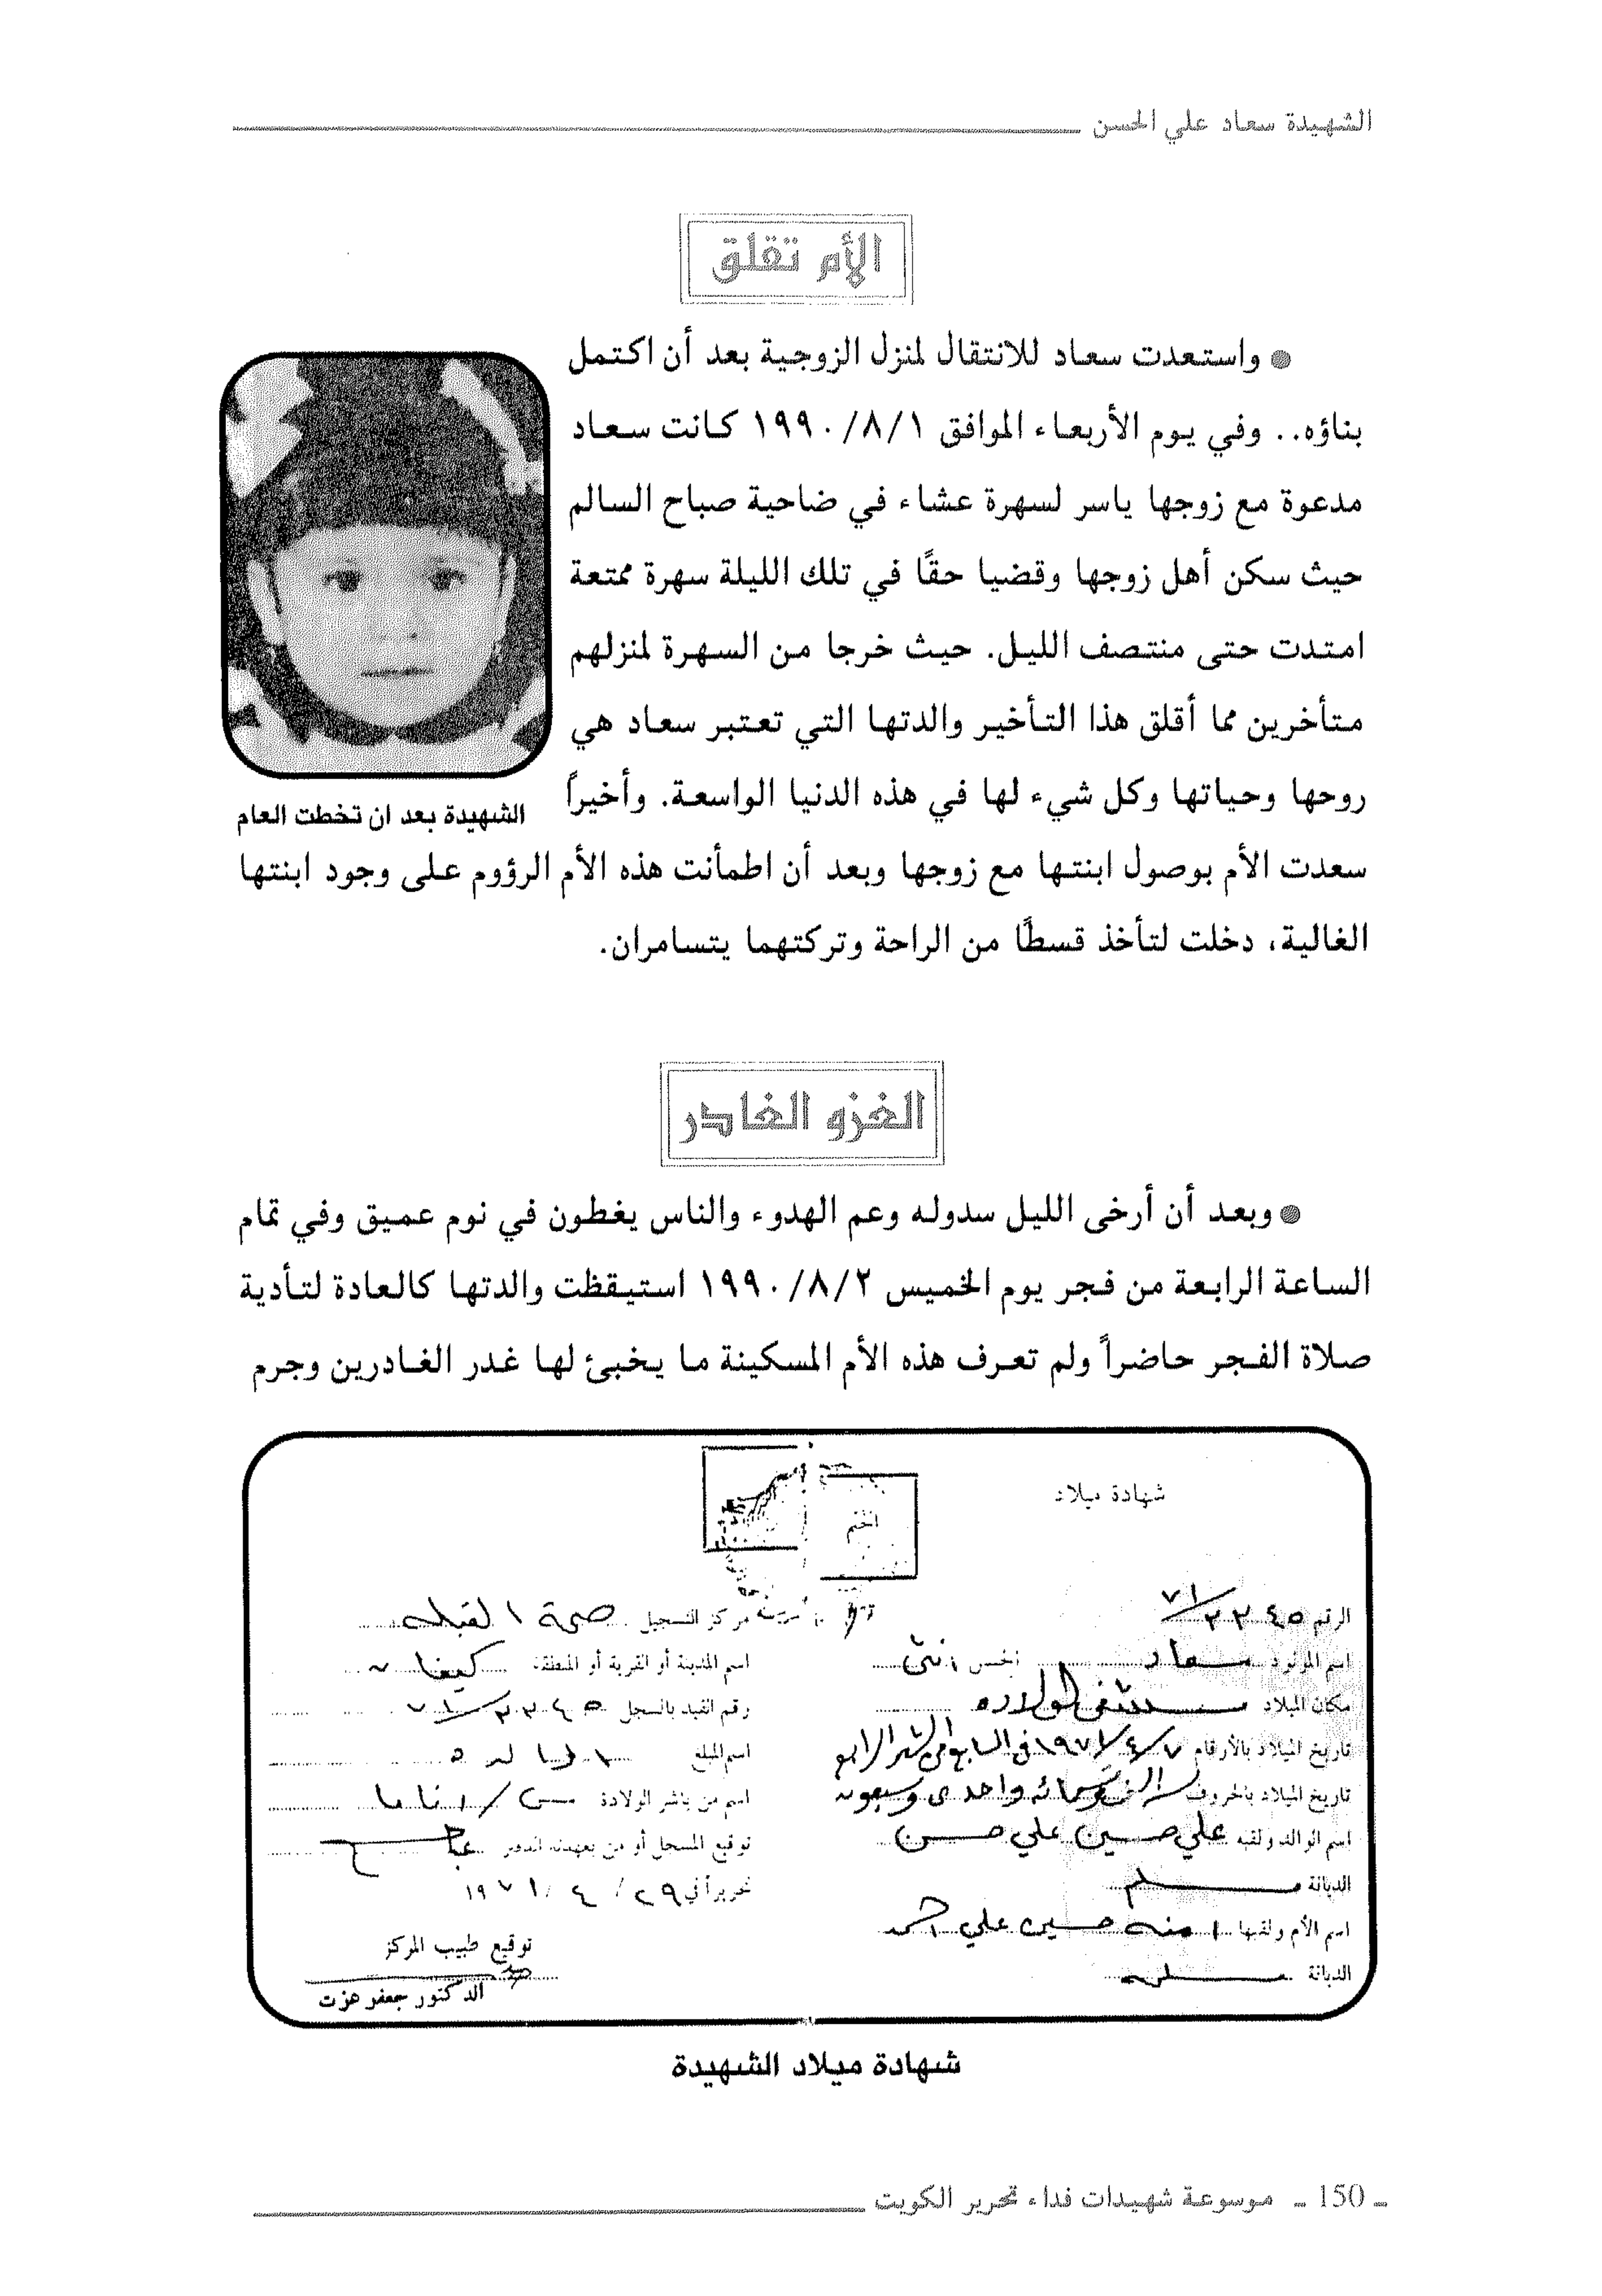 الشهيدة سعاد علي الحسن
الأم تقلق
● واستعدت سعاد للانتقال لمنزل الزوجية بعد أن اكتمل
بناؤه.. وفي يوم الأربعاء الموافق ١٩٩٠/٨/١ كانت سعاد
مدعوة مع زوجها ياسر لسهرة عشاء في ضاحية صباح السالم
حيث سكن أهل زوجها وقضيا حقًا في تلك الليلة سهرة ممتعة
امتدت حتى منتصف الليل. حيث خرجا من السهرة لمنزلهم
متأخرين مما أقلق هذا التأخير والدتها التي تعتبر سعاد هي
روحها وحياتها وكل شيء لها في هذه الدنيا الواسعة. وأخيراً
الشهيدة بعد ان تخطت العام
سعدت الأم بوصول ابنتها مع زوجها وبعد أن اطمأنت هذه الأم الرؤوم على وجود ابنتها
الغالية، دخلت لتأخذ قسطًا من الراحة وتركتهما يتسامران.
الغزو الغادر
● وبعد أن أرخى الليل سدوله وعم الهدوء والناس يغطون في نوم عميق وفي تمام
الساعة الرابعة من فجر يوم الخميس ١٩٩٠/٨/٢ استيقظت والدتها كالعادة لتأدية
صلاة الفجر حاضراً ولم تعرف هذه الأم المسكينة ما يخبئ لها غدر الغادرين وجرم
شهادة ميلاد
الختم
الرقم
اسم المولود سعاد الجنس انثى
مكان الميلاد مستشفى الولاده
تاريخ الميلاد بالأرقام ٧/٤/١٩٧١ في السابع من الشهر الرابع
تاريخ الميلاد بالحروف سنة الف وتسعمائه واحدى وسبعون
اسم الوالد ولقبه علي حسين علي حسن
الديانة مسلم
اسم الأم ولقبها امنه حسين علي احمد
الديانة مسلمه
مركز التسجيل صحة القبله
اسم المدينة أو القرية أو المنطقة كيفان
رقم القيد بالسجل
اسم المبلغ الوالده
اسم من باشر الولادة
توقيع المسجل أو من بعهدته الدفتر
تحريراً في ٢٩/٤/١٩٧١
توقيع طبيب المركز
الدكتور جعفر عزت
شهادة ميلاد الشهيدة
ـ 150 ـ موسوعة شهيدات فداء تحرير الكويت